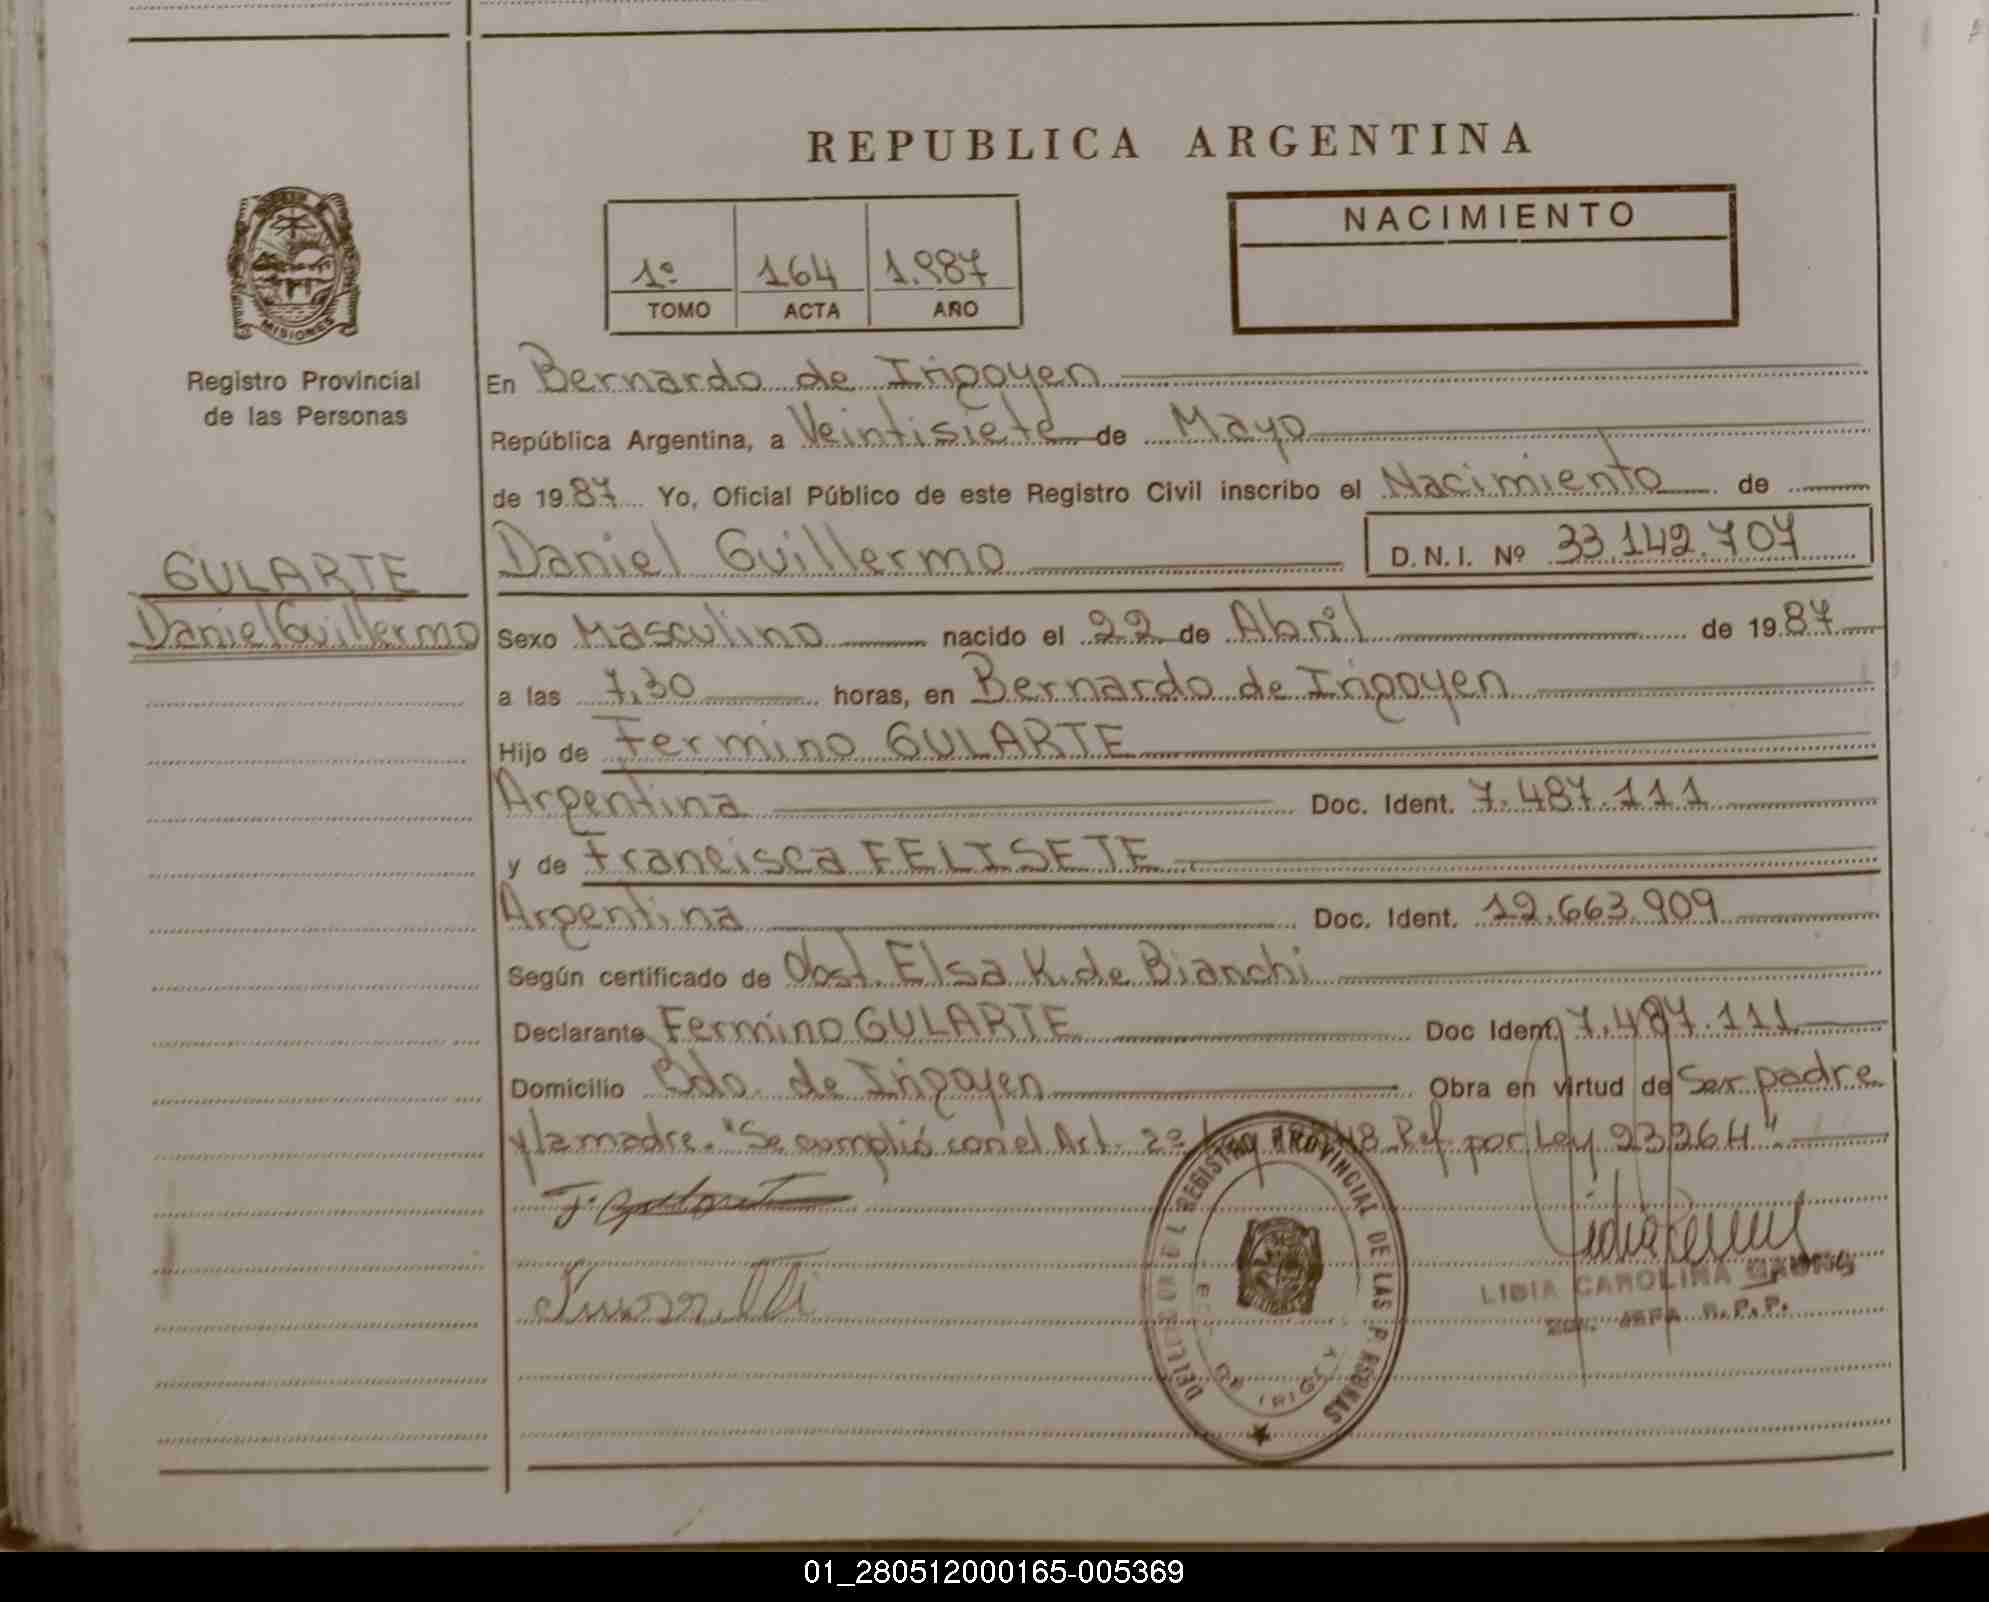 REPUBLICA ARGENTINA
MISIONES
Registro Provincial
de las Personas
1º 164 1.987
TOMO ACTA AÑO
NACIMIENTO
En Bernardo de Irigoyen
República Argentina, a Veintisiete de Mayo
de 1987 Yo, Oficial Público de este Registro Civil inscribo el Nacimiento de
GULARTE
Daniel Guillermo
Daniel Guillermo D.N.I. Nº 33.142.707
Sexo Masculino nacido el 22 de Abril de 1987
a las 7,30 horas, en Bernardo de Irigoyen
Hijo de Fermino GULARTE
Argentina Doc. Ident. 7.487.111
y de Francisca FELISETE
Argentina Doc. Ident. 12.663.909
Según certificado de Obst. Elsa K. de Bianchi
Declarante Fermino GULARTE Doc Ident. 7.487.111
Domicilio Bdo. de Irigoyen Obra en virtud de Ser padre
y la madre. "Se cumplió con el Art. 2º Ref por Ley 23264"
REGISTRO PROVINCIAL DE LAS PERSONAS
LIDIA CAROLINA
R.P.P.
01_280512000165-005369